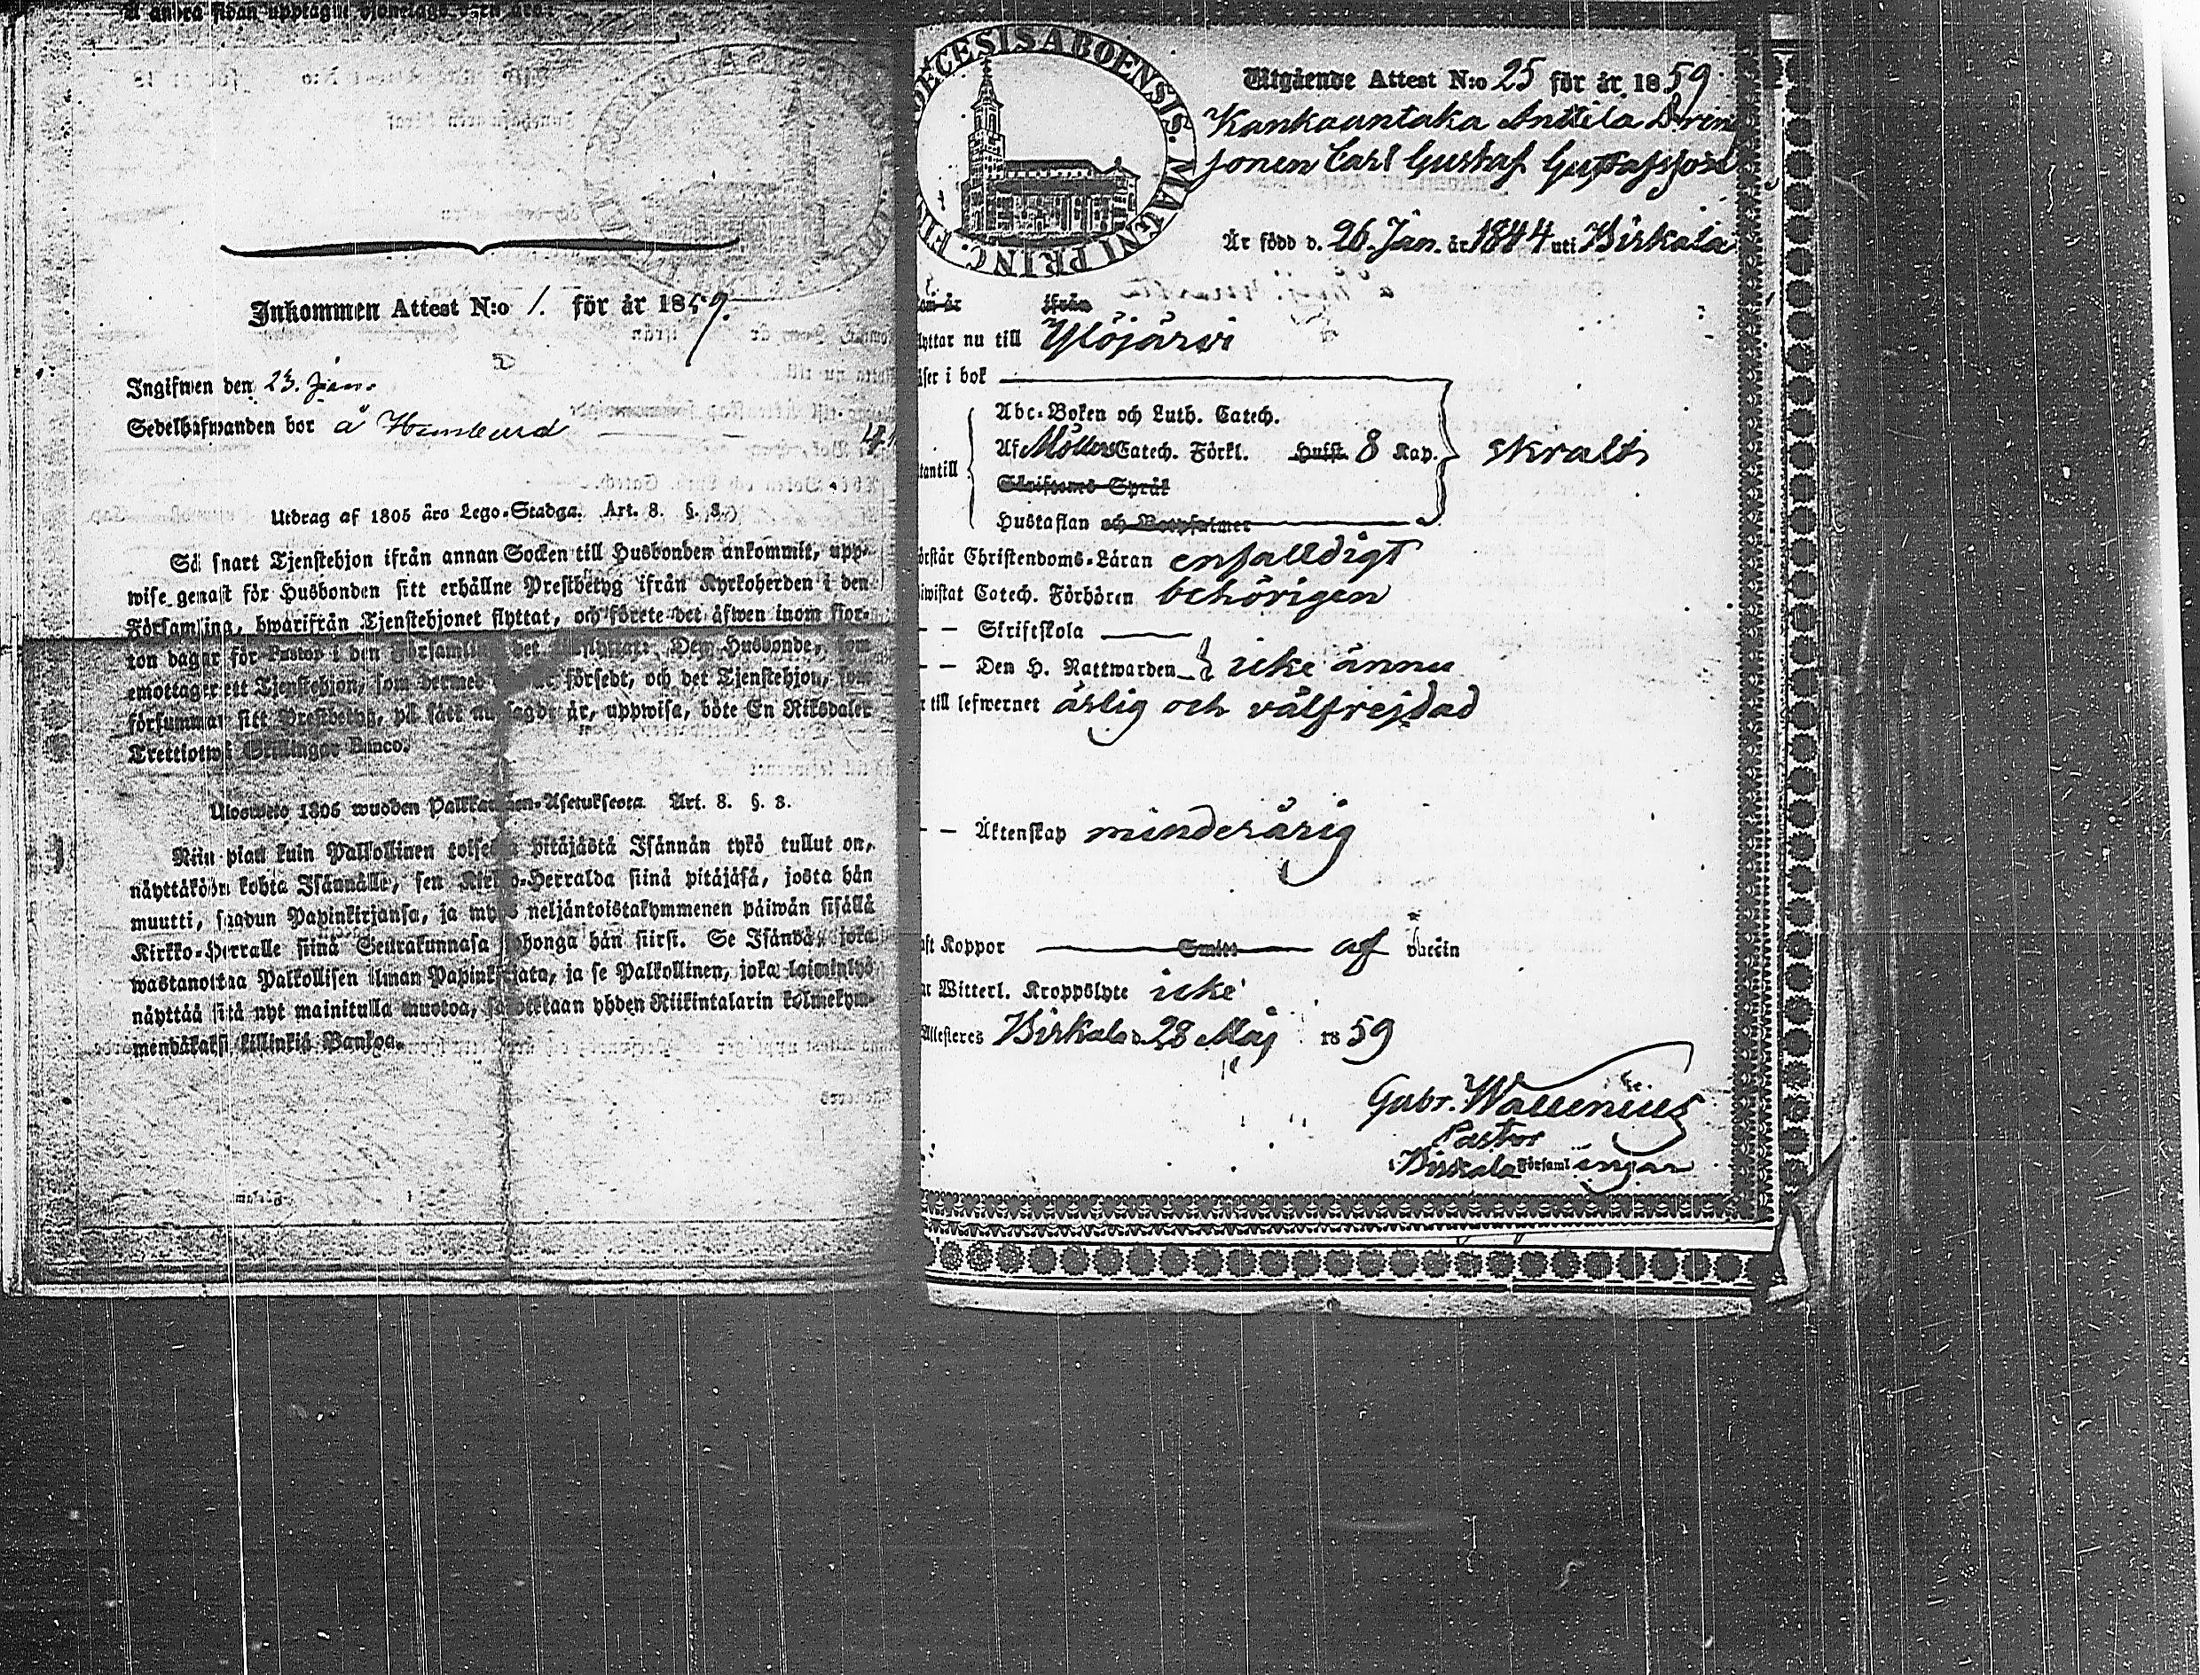 Inkommen Attest N:o 1. för år 1859.
Ingifwen den 23. Jan.
Sedelhafwanden bor å
Utdrag af 1805 års Lego-Stadga. Art. 8. §. 8.
Så snart Tjenstehjon ifrån annan Socken till Husbonden ankommit, upp-
wise genast för Husbonden sitt erhållne Prestbetyg ifrån Kyrkoherden i den
Församling, hwarifrån Tjenstehjonet flyttat, och förete det äfwen inom fjor-
ton dagar för Pastor i den Församling det Den Husbonde, som
emottager ett Tjenstehjon, som dermed försedt, och det Tjenstehjon, som
försummar sitt Prestbetyg, på sätt nu sagdt är, uppwisa, böte En Riksdaler
Trettiotwå Skillingar Banco.
Ulosweto 1805 wuoden Palkkawäen-Asetuksesta Art. 8. §. 8.
Niin pian kuin Palkollinen toisesta pitäjästä Isännän tykö tullut on,
näyttäköön kohta Isännälle, sen Kirkko-Herralda siinä pitäjäsä, josta hän
muutti, saadun Papinkirjansa, ja myös neljäntoistakymmenen päiwän sisällä
Kirkko-Herralle siinä Seurakunnasa johonga hän siirsi. Se Isändä, joka
wastanottaa Palkollisen ilman Papinkirjata, ja se Palkollinen, joka laiminlyö
näyttää sitä nyt mainitulla muotoa, sakotetaan yhden Riikintalarin kolmekym-
mendäkaksi killinkiä Bankoa.
DIECESIS ABOENSIS. MAGNI PRINC.
Utgående Attest N:o 25 för år 1859
Kankaantaka Anttila Dräng
sonen Carl Gustaf Gustafsson
Är född d. 26. Jan. år 1844 uti Birkala
ifrån
flyttar nu till Ylöjärwi
läser i bok
Abc-Boken och Luth. Catech.
Af Möllers Catech. Förkl. Hufst. 8 Kap. skralt
utantill
Skriftenes Språk
Hustaflan och Botpsalmer
förstår Christendoms-Läran enfalldigt
biwistat Catech. Förhören behörigen
— — Skriftskola
— — Den H. Nattwarden icke ännu
till lefwernet ärlig och välfrejdad
— — Äktenskap minderårig
haft Koppor Smitt af vaccin
Witterl. Kroppslyte icke
Attesteres Birkala d. 28 Maj 1859
Gabr. Wallenius
Pastor
i Birkala Församlingar